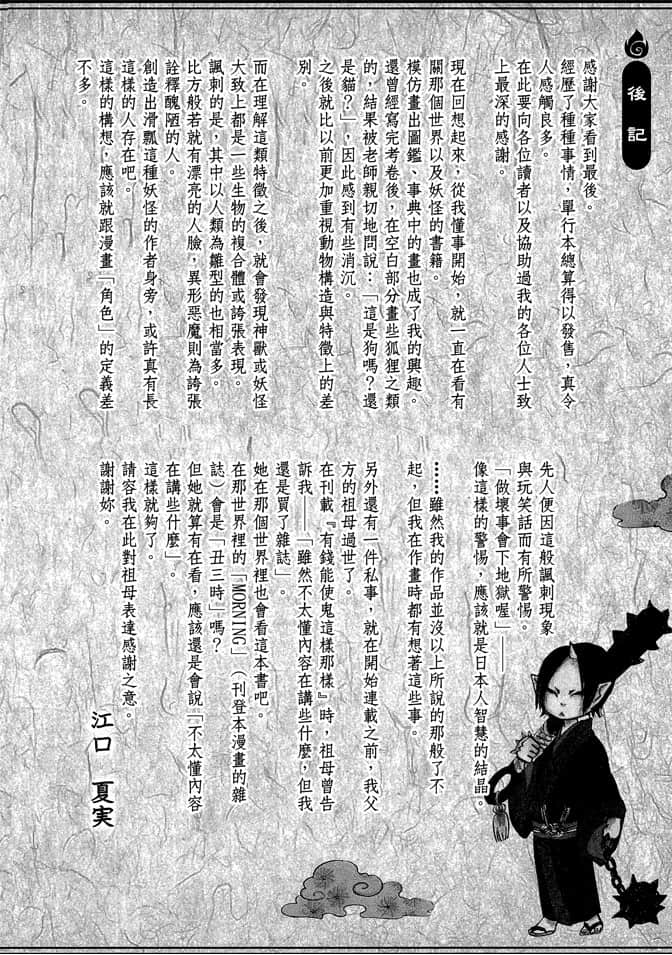 後記
感謝大家看到最後。
經歷了種種事情，單行本總算得以發售，真令
人感觸良多。
在此要向各位讀者以及協助過我的各位人士致
上最深的感謝。
現在回想起來，從我懂事開始，就一直在看有
關那個世界以及妖怪的書籍。
模仿畫出圖鑑、事典中的畫也成了我的興趣。
還曾經寫完考卷後，在空白部分畫些狐狸之類
的，結果被老師親切地問說：「這是狗嗎？還
是貓？」，因此感到有些消沉。
之後就比以前更加重視動物構造與特徵上的差
別。
而在理解這類特徵之後，就會發現神獸或妖怪
大致上都是一些生物的複合體或誇張表現。
諷刺的是，其中以人類為雛型的也相當多。
比方般若就有漂亮的人臉，異形惡魔則為誇張
詮釋醜陋的人。
創造出滑瓢這種妖怪的作者身旁，或許真有長
這樣的人存在吧。
這樣的構想，應該就跟漫畫「角色」的定義差
不多。
先人便因這般諷刺現象
與玩笑話而有所警惕。
「做壞事會下地獄喔」——
像這樣的警惕，應該就是日本人智慧的結晶。
……雖然我的作品並沒以上所說的那般了不
起，但我在作畫時都有想著這些事。
另外還有一件私事，就在開始連載之前，我父
方的祖母過世了。
在刊載『有錢能使鬼這樣那樣』時，祖母曾告
訴我——「雖然不太懂內容在講些什麼，但我
還是買了雜誌」。
她在那個世界裡也會看這本書吧。
在那世界裡的「MORNING」（刊登本漫畫的雜
誌）會是「丑三時」嗎？
但她就算有在看，應該還是會說「不太懂內容
在講些什麼」。
這樣就夠了。
請容我在此對祖母表達感謝之意。
謝謝妳。
江口　夏実